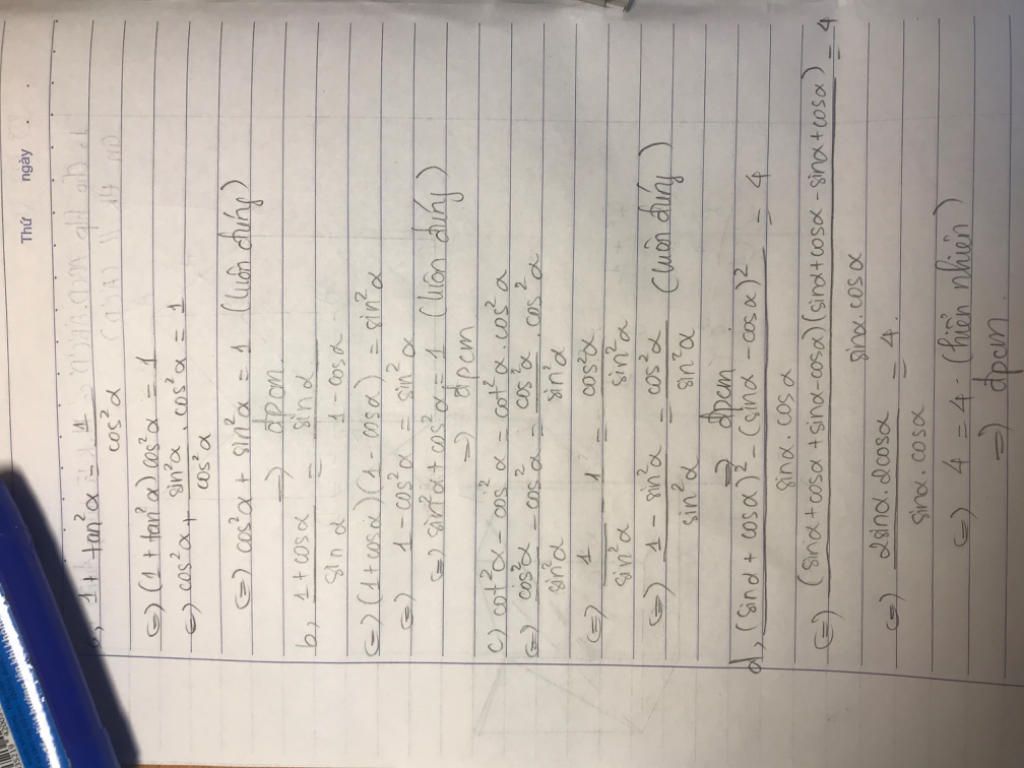 Thứ ngày
1 + tan²α = 1
cos²α
⇔ (1 + tan²α) cos²α = 1
⇔ cos²α + sin²α . cos²α = 1
cos²α
⇔ cos²α + sin²α = 1 (luôn đúng)
⇒ đpcm
b, 1 + cosα = sinα
sinα 1 - cosα
⇔ (1 + cosα)(1 - cosα) = sin²α
⇔ 1 - cos²α = sin²α
⇔ sin²α + cos²α = 1 (luôn đúng)
⇒ đpcm
c) cot²α - cos²α = cot²α . cos²α
⇔ cos²α - cos²α = cos²α . cos²α
sin²α sin²α
⇔ 1 - 1 = cos²α
sin²α sin²α
⇔ 1 - sin²α = cos²α (luôn đúng)
sin²α sin²α
⇒ đpcm
d, (sinα + cosα)² - (sinα - cosα)² = 4
sinα . cosα
⇔ (sinα + cosα + sinα - cosα)(sinα + cosα - sinα + cosα) = 4
sinα . cosα
⇔ 2sinα . 2cosα = 4
sinα . cosα
⇔ 4 = 4 . (hiển nhiên)
⇒ đpcm